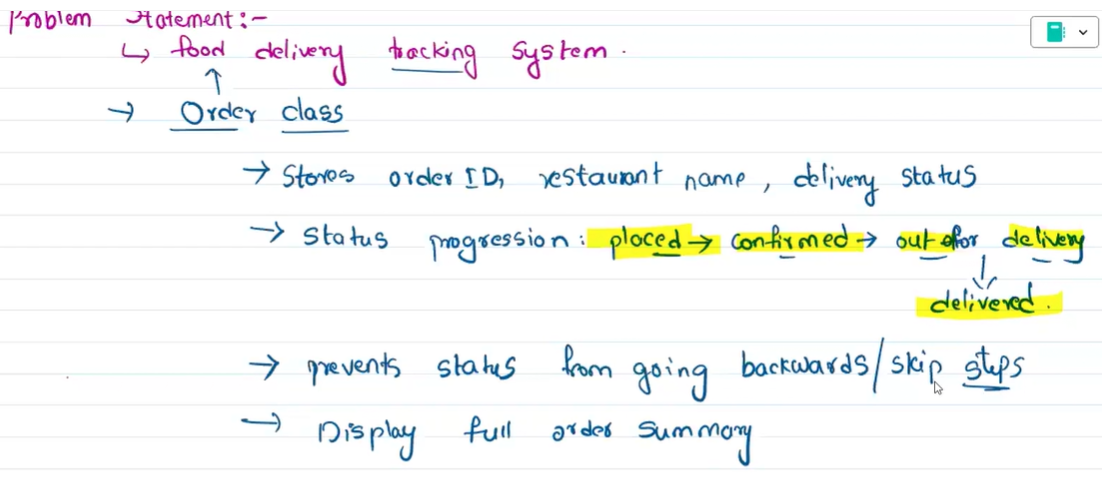 Problem Statement:-
↳ food delivery tracking system.
→ Order class
→ Stores order ID, restaurant name, delivery status
→ Status progression: placed → confirmed → out for delivery
delivered.
→ prevents status from going backwards/skip steps
→ Display full order summary